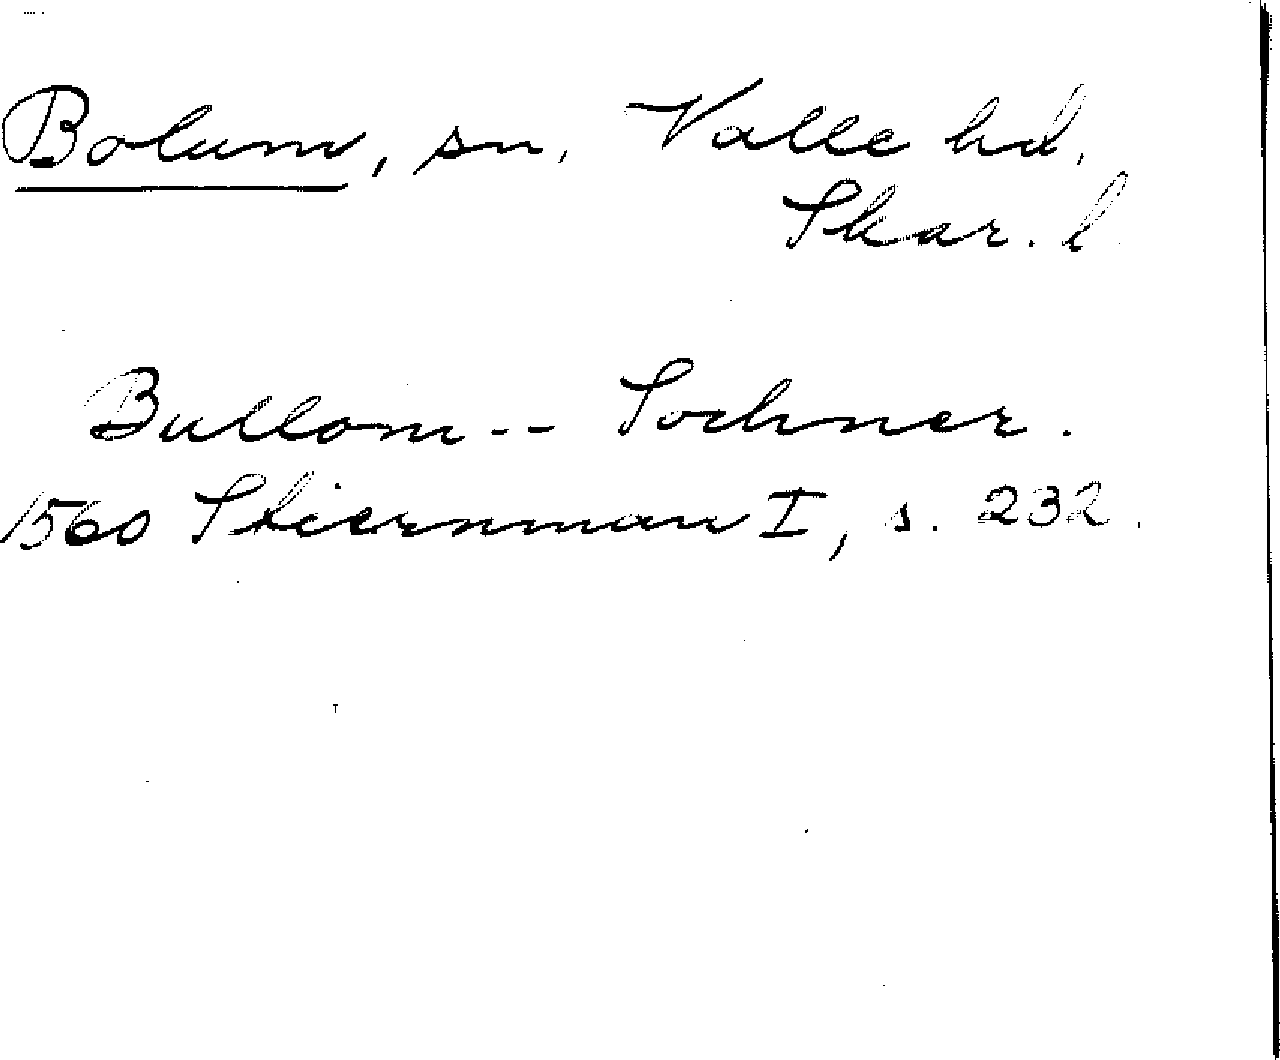 Bolum, sn, Valle hd.
Skar. l
Bullom -- Sochner.
1560 Stiernman I, s. 232.